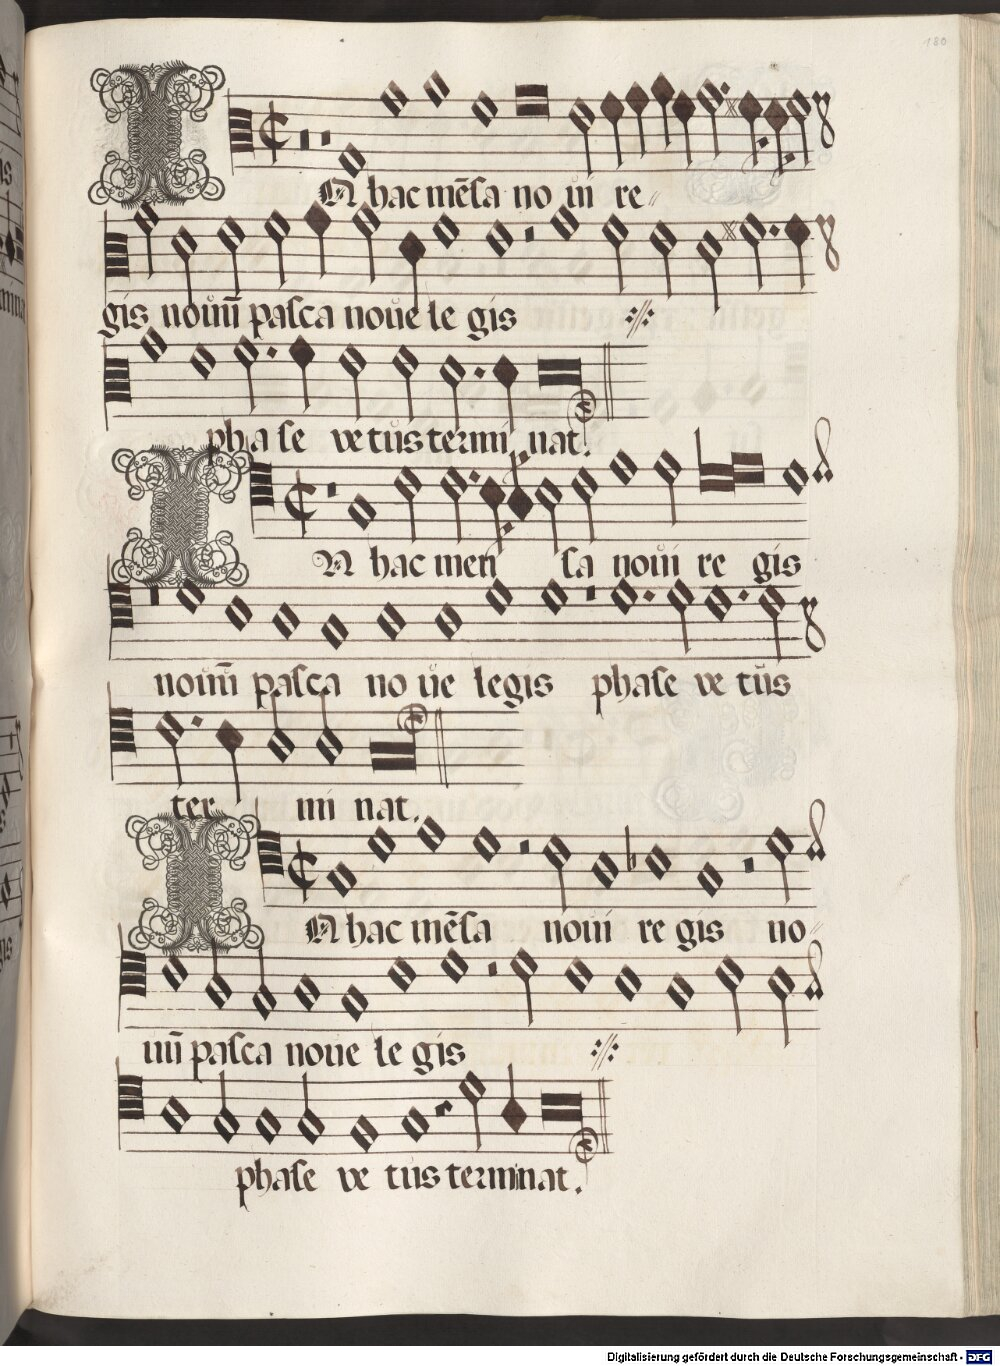 180
IN hac mēsa no ui re
gis nouū pasca noue le gis
phase vetus termi nat.
IN hac men sa noui re gis
nouū pasca no ue legis phase ve tus
ter mi nat.
IN hac mēsa noui re gis no
uū pasca noue le gis
phase ve tus terminat.
Digitalisierung gefördert durch die Deutsche Forschungsgemeinschaft - DFG